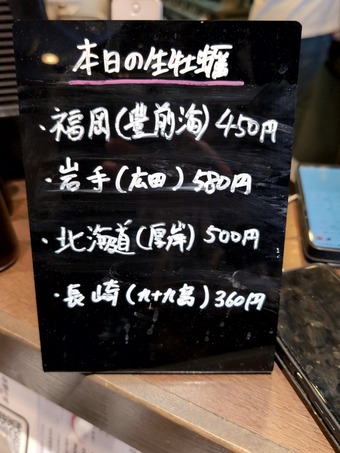 本日の生牡蠣
・福岡(豊前海)450円
・岩手(広田)580円
・北海道(厚岸)500円
・長崎(九十九島)360円